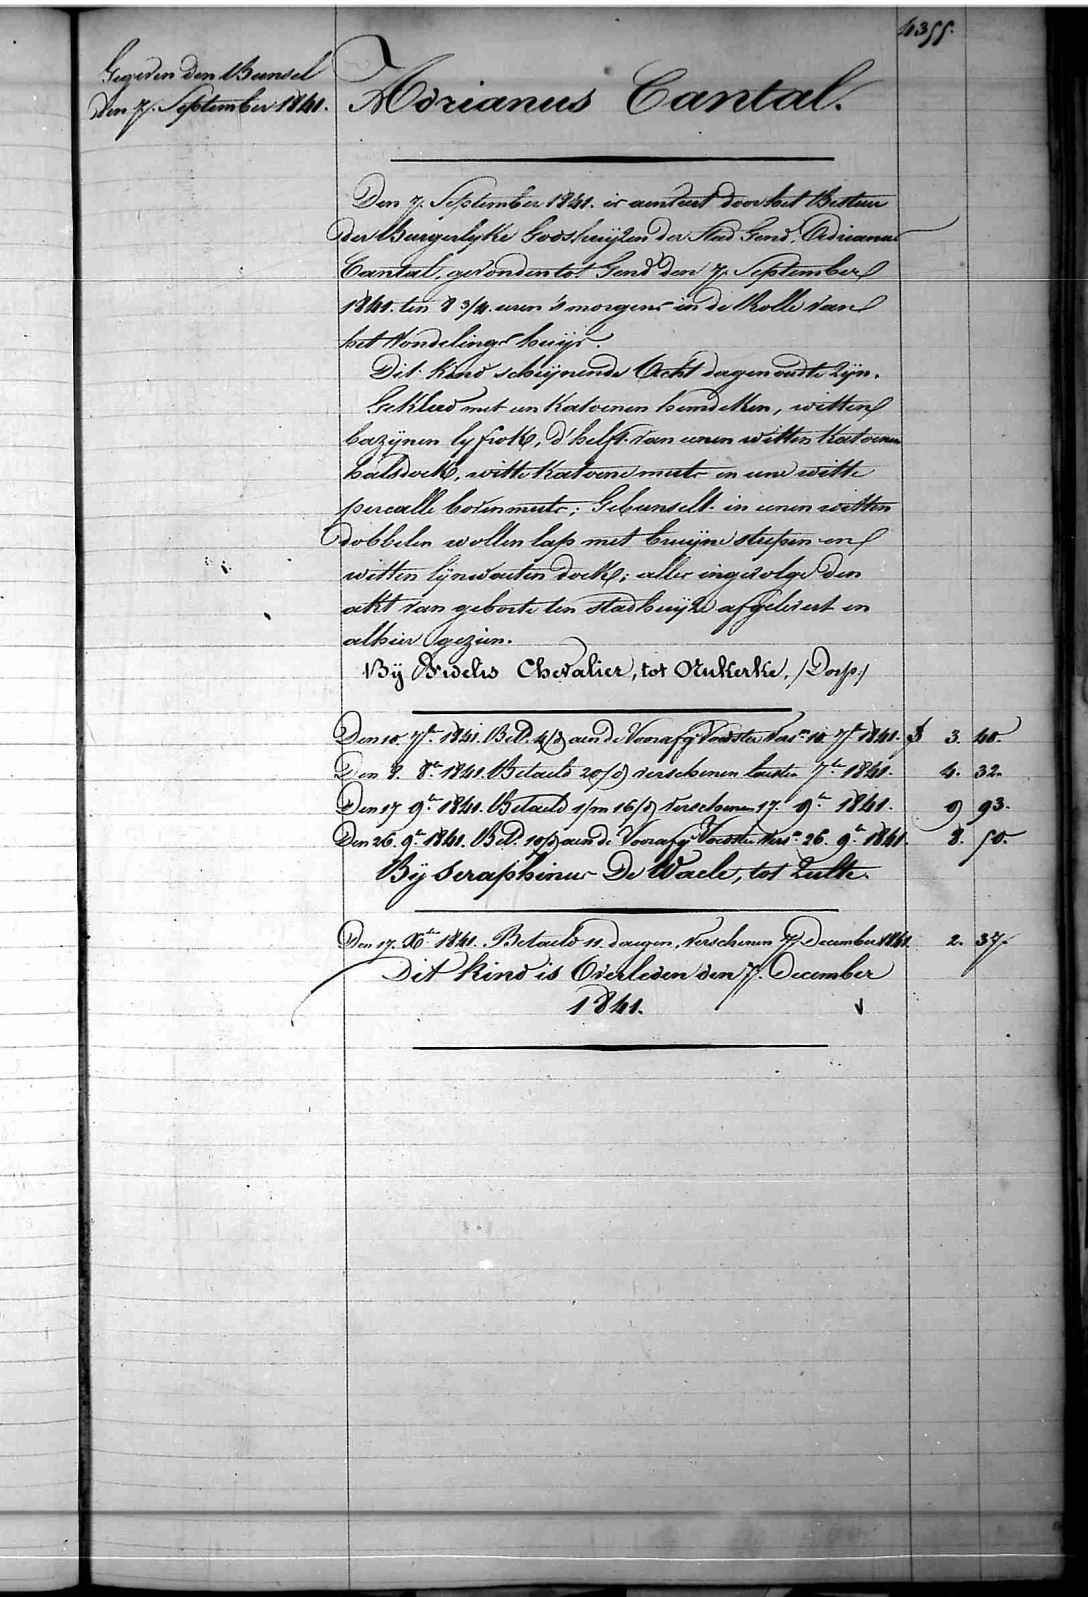 4355.
Gegeven den Bunsel
den 7. September 1841.
Adrianus Cantal.
Den 7. September 1841. is aenveert door het Bestuur
der Burgerlyke Godshuijzen der Stad Gend, Adrianus
Cantal, gevonden tot Gend den 7. September
1841. ten 8 3/4. uren 's morgens in de Rolle van
het Vondelings huijs.
Dit kind schijnende Acht dagen oud te zijn.
Gekleed met een katoenen hemdeken, witten
bazijnen lyfrok, d'helft van eenen witten katoenen
halsdoek, witte katoene muts en eene witte
percalle bovenmuts; Gebunselt in eenen witten
dobbelen wollen lap met bruijne strepen en
witten lijnwaeten doek; alles ingevolge den
akt van geboorte ten stadhuijze afgelevert en
alhier gezien.
Bij Fidelis Chevalier, tot Nukerke, /Dorp./
Den 10. 7.re 1841. Bet.d 4/3 aen de Voorafg. Voedster vers.n 10 7.re 1841. f 3. 40.
Den 8. 8.re 1841. Betaeld 20/d verschenen laesten 7.re 1841. 4. 32.
Den 17 9.re 1841. Betaeld 1/m 16/d verschenen 17. 9.re 1841. 9 93.
Den 26. 9.re 1841. Bet.d 10/d aen de Voorafg. Voedster vers.n 26. 9.re 1841. 8. 50.
Bij Seraphinus De Waele, tot Zulte.
Den 17. X.re 1841. Betaeld 11. daegen, verschenen 7 December 1841. 2. 37.
Dit kind is Overleden den 7. December
1841.